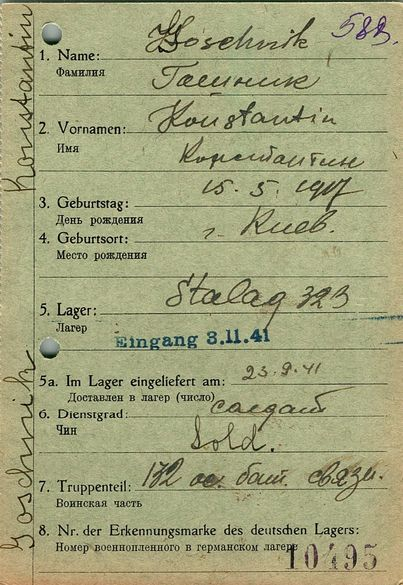 583.
Goschnik
1. Name:
Фамилия
Гашник
2. Vornamen: Konstantin
Имя
Константин
15. 5. 1917
3. Geburtstag:
День рождения
г. Киев.
4. Geburtsort:
Место рождения
5. Lager: Stalag 323
Лагерь
Eingang 3.11.41
5a. Im Lager eingeliefert am: 23.9.41
Доставлен в лагер (число)
6. Dienstgrad: солдат
Чин
Sold.
7. Truppenteil: 132 бат. связи.
Воинская часть
8. Nr. der Erkennungsmarke des deutschen Lagers:
Номер военнопленного в германском лагере
10495
Goschnik Konstantin